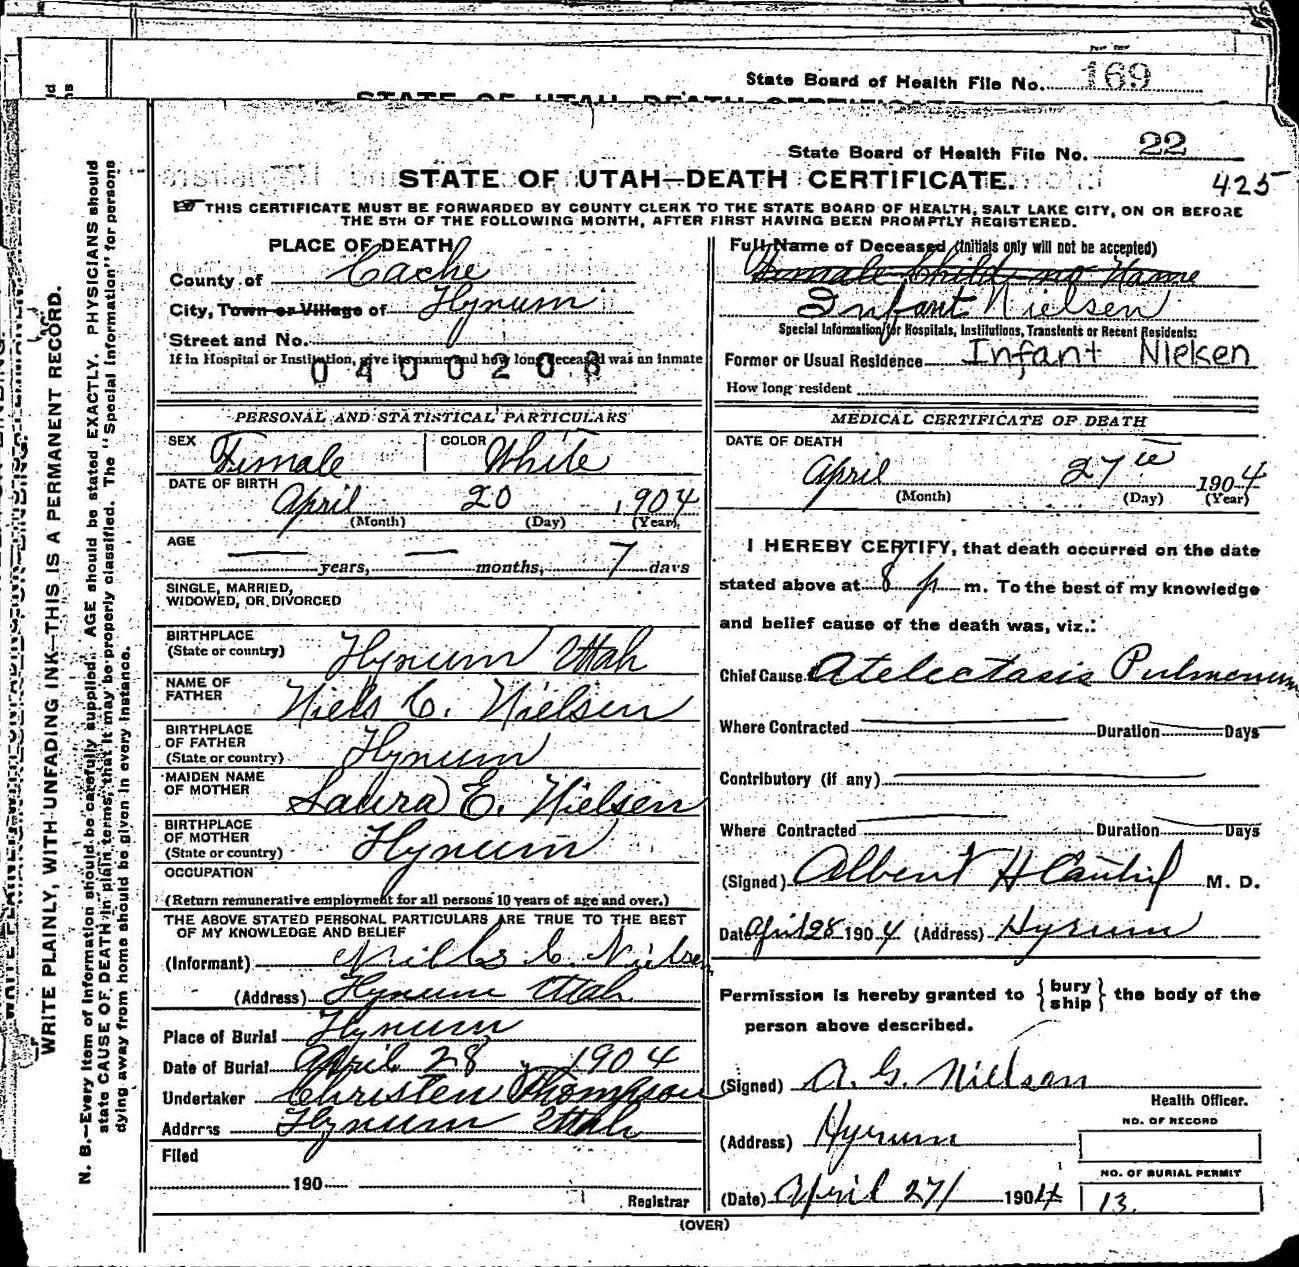 State Board of Health File No. 169
STATE OF UTAH—DEATH CERTIFICATE
State Board of Health File No. 22
425
STATE OF UTAH—DEATH CERTIFICATE.
THIS CERTIFICATE MUST BE FORWARDED BY COUNTY CLERK TO THE STATE BOARD OF HEALTH, SALT LAKE CITY, ON OR BEFORE
THE 5TH OF THE FOLLOWING MONTH, AFTER FIRST HAVING BEEN PROMPTLY REGISTERED.
PLACE OF DEATH
County of Cache
City, Town or Village of Hyrum
Street and No.
If in Hospital or Institution, give its name and how long deceased was an inmate
0400208
PERSONAL AND STATISTICAL PARTICULARS
SEX Female COLOR White
DATE OF BIRTH April 20 1904
(Month) (Day) (Year)
AGE — years, — months, 7 days
SINGLE, MARRIED,
WIDOWED, OR DIVORCED
BIRTHPLACE
(State or country) Hyrum Utah
NAME OF
FATHER Niels C. Nielsen
BIRTHPLACE
OF FATHER
(State or country) Hyrum
MAIDEN NAME
OF MOTHER Laura E. Nielsen
BIRTHPLACE
OF MOTHER
(State or country) Hyrum
OCCUPATION
(Return remunerative employment for all persons 10 years of age and over.)
THE ABOVE STATED PERSONAL PARTICULARS ARE TRUE TO THE BEST
OF MY KNOWLEDGE AND BELIEF
(Informant) C. Nielsen
(Address) Hyrum Utah
Place of Burial Hyrum
Date of Burial April 28, 1904
Undertaker Christen Thompson
Address Hyrum Utah
Filed
190
Registrar
Full Name of Deceased (Initials only will not be accepted)
Female Child no Name
Infant Nielsen
Special Information for Hospitals, Institutions, Transients or Recent Residents:
Former or Usual Residence Infant Nielsen
How long resident
MEDICAL CERTIFICATE OF DEATH
DATE OF DEATH
April 27 1904
(Month) (Day) (Year)
I HEREBY CERTIFY, that death occurred on the date
stated above at 8 p m. To the best of my knowledge
and belief cause of the death was, viz.:
Chief Cause Atelectasis Pulmonum
Where Contracted — Duration — Days
Contributory (if any) —
Where Contracted — Duration — Days
(Signed) Albert H M. D.
Date April 28 1904 (Address) Hyrum
Permission is hereby granted to {bury ship} the body of the
person above described.
(Signed) A. G. Nielson
Health Officer.
(Address) Hyrum
NO. OF RECORD
NO. OF BURIAL PERMIT
(Date) April 27/ 1904 13.
(OVER)
WRITE PLAINLY, WITH UNFADING INK—THIS IS A PERMANENT RECORD.
N. B.—Every item of information should be carefully supplied. AGE should be stated EXACTLY. PHYSICIANS should
state CAUSE OF DEATH in plain terms, that it may be properly classified. The "Special Information" for persons
dying away from home should be given in every instance.